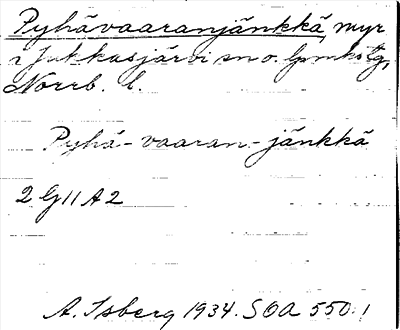 Pyhävaaranjänkkä, myr
i Jukkasjärvi sn o. lpmksltg,
Norrb. l.
Pyhä-vaaran-jänkkä
2 G 11 A 2
A. Isberg 1934. SOA 550:1